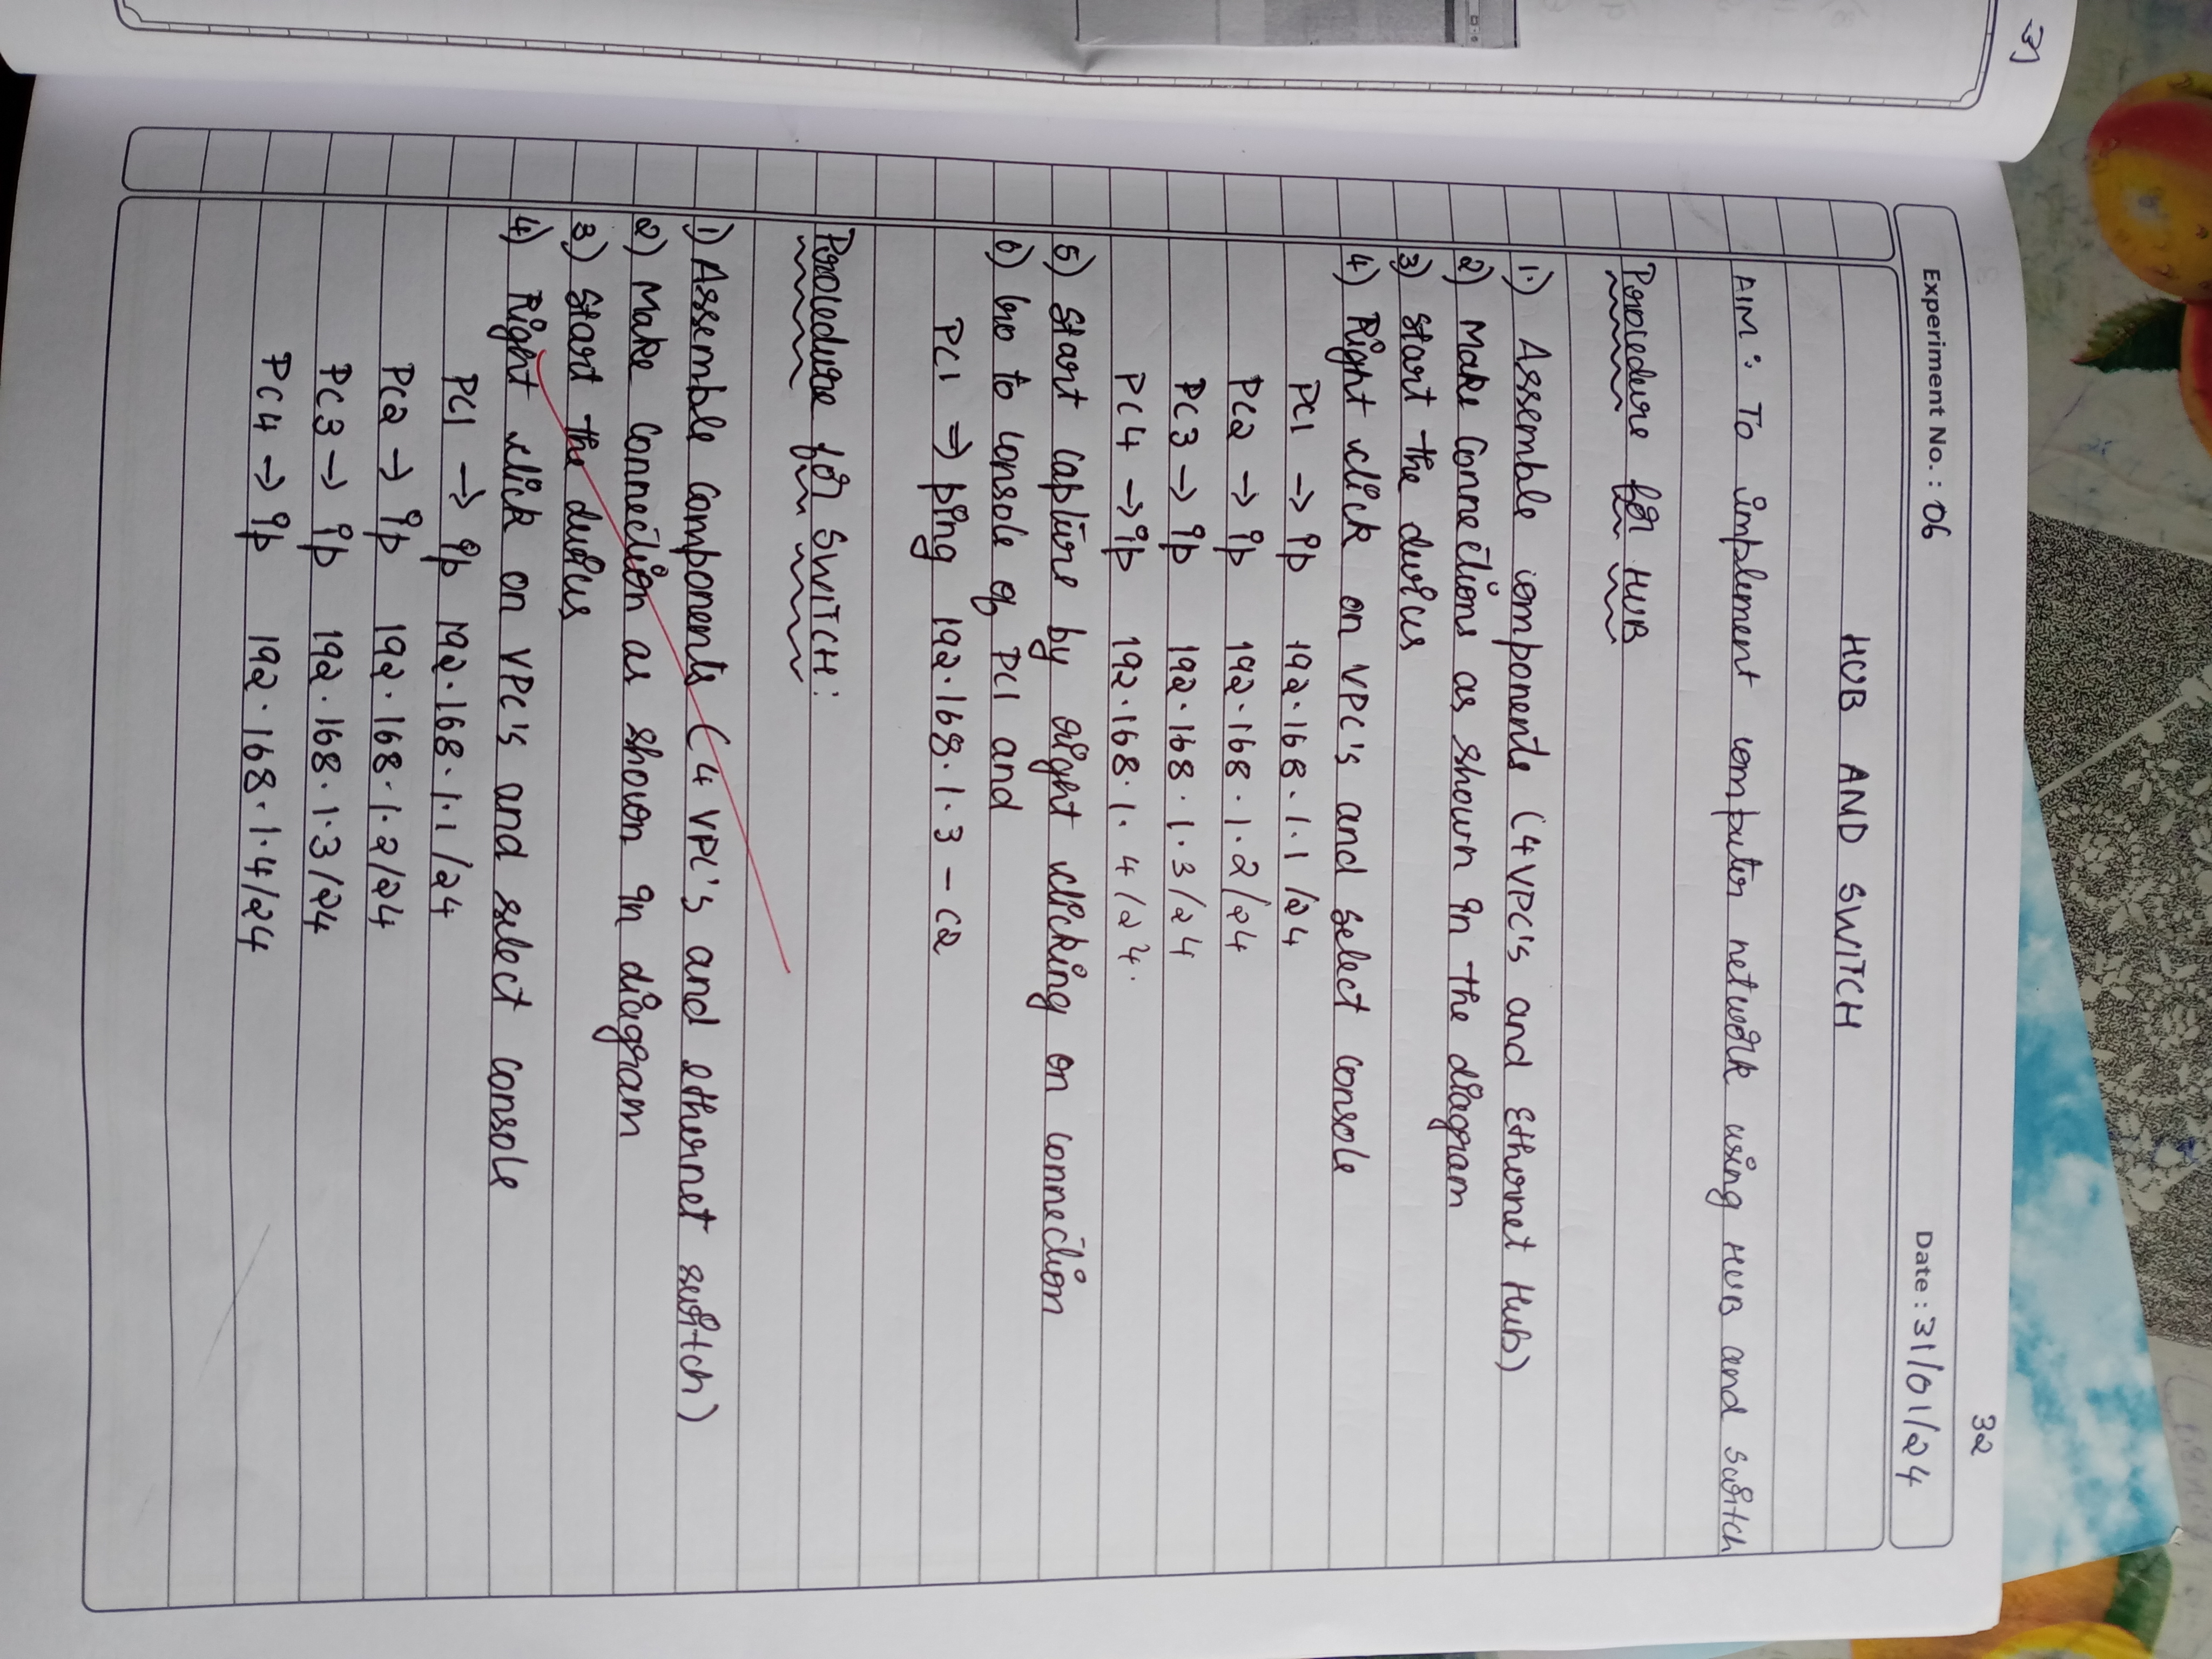 31
32
Experiment No. : 06 Date : 31/01/24
HUB AND SWITCH
AIM : To implement computer network using HUB and switch
Procedure for HUB
1) Assemble components (4 VPC's and Ethernet Hub)
2) Make Connections as shown in the diagram
3) start the devices
4) Right click on VPC's and select console
PC1 → ip 192.168.1.1/24
PC2 → ip 192.168.1.2/24
PC3 → ip 192.168.1.3/24
PC4 → ip 192.168.1.4/24.
5) start capture by right clicking on connection
6) Go to console of PC1 and
PC1 ⇒ ping 192.168.1.3 - c2
Procedure for SWITCH:
1) Assemble components (4 VPC's and ethernet switch)
2) Make connection as shown in diagram
3) start the devices
4) Right click on VPC's and select console
PC1 → ip 192.168.1.1/24
PC2 → ip 192.168.1.2/24
PC3 → ip 192.168.1.3/24
PC4 → ip 192.168.1.4/24